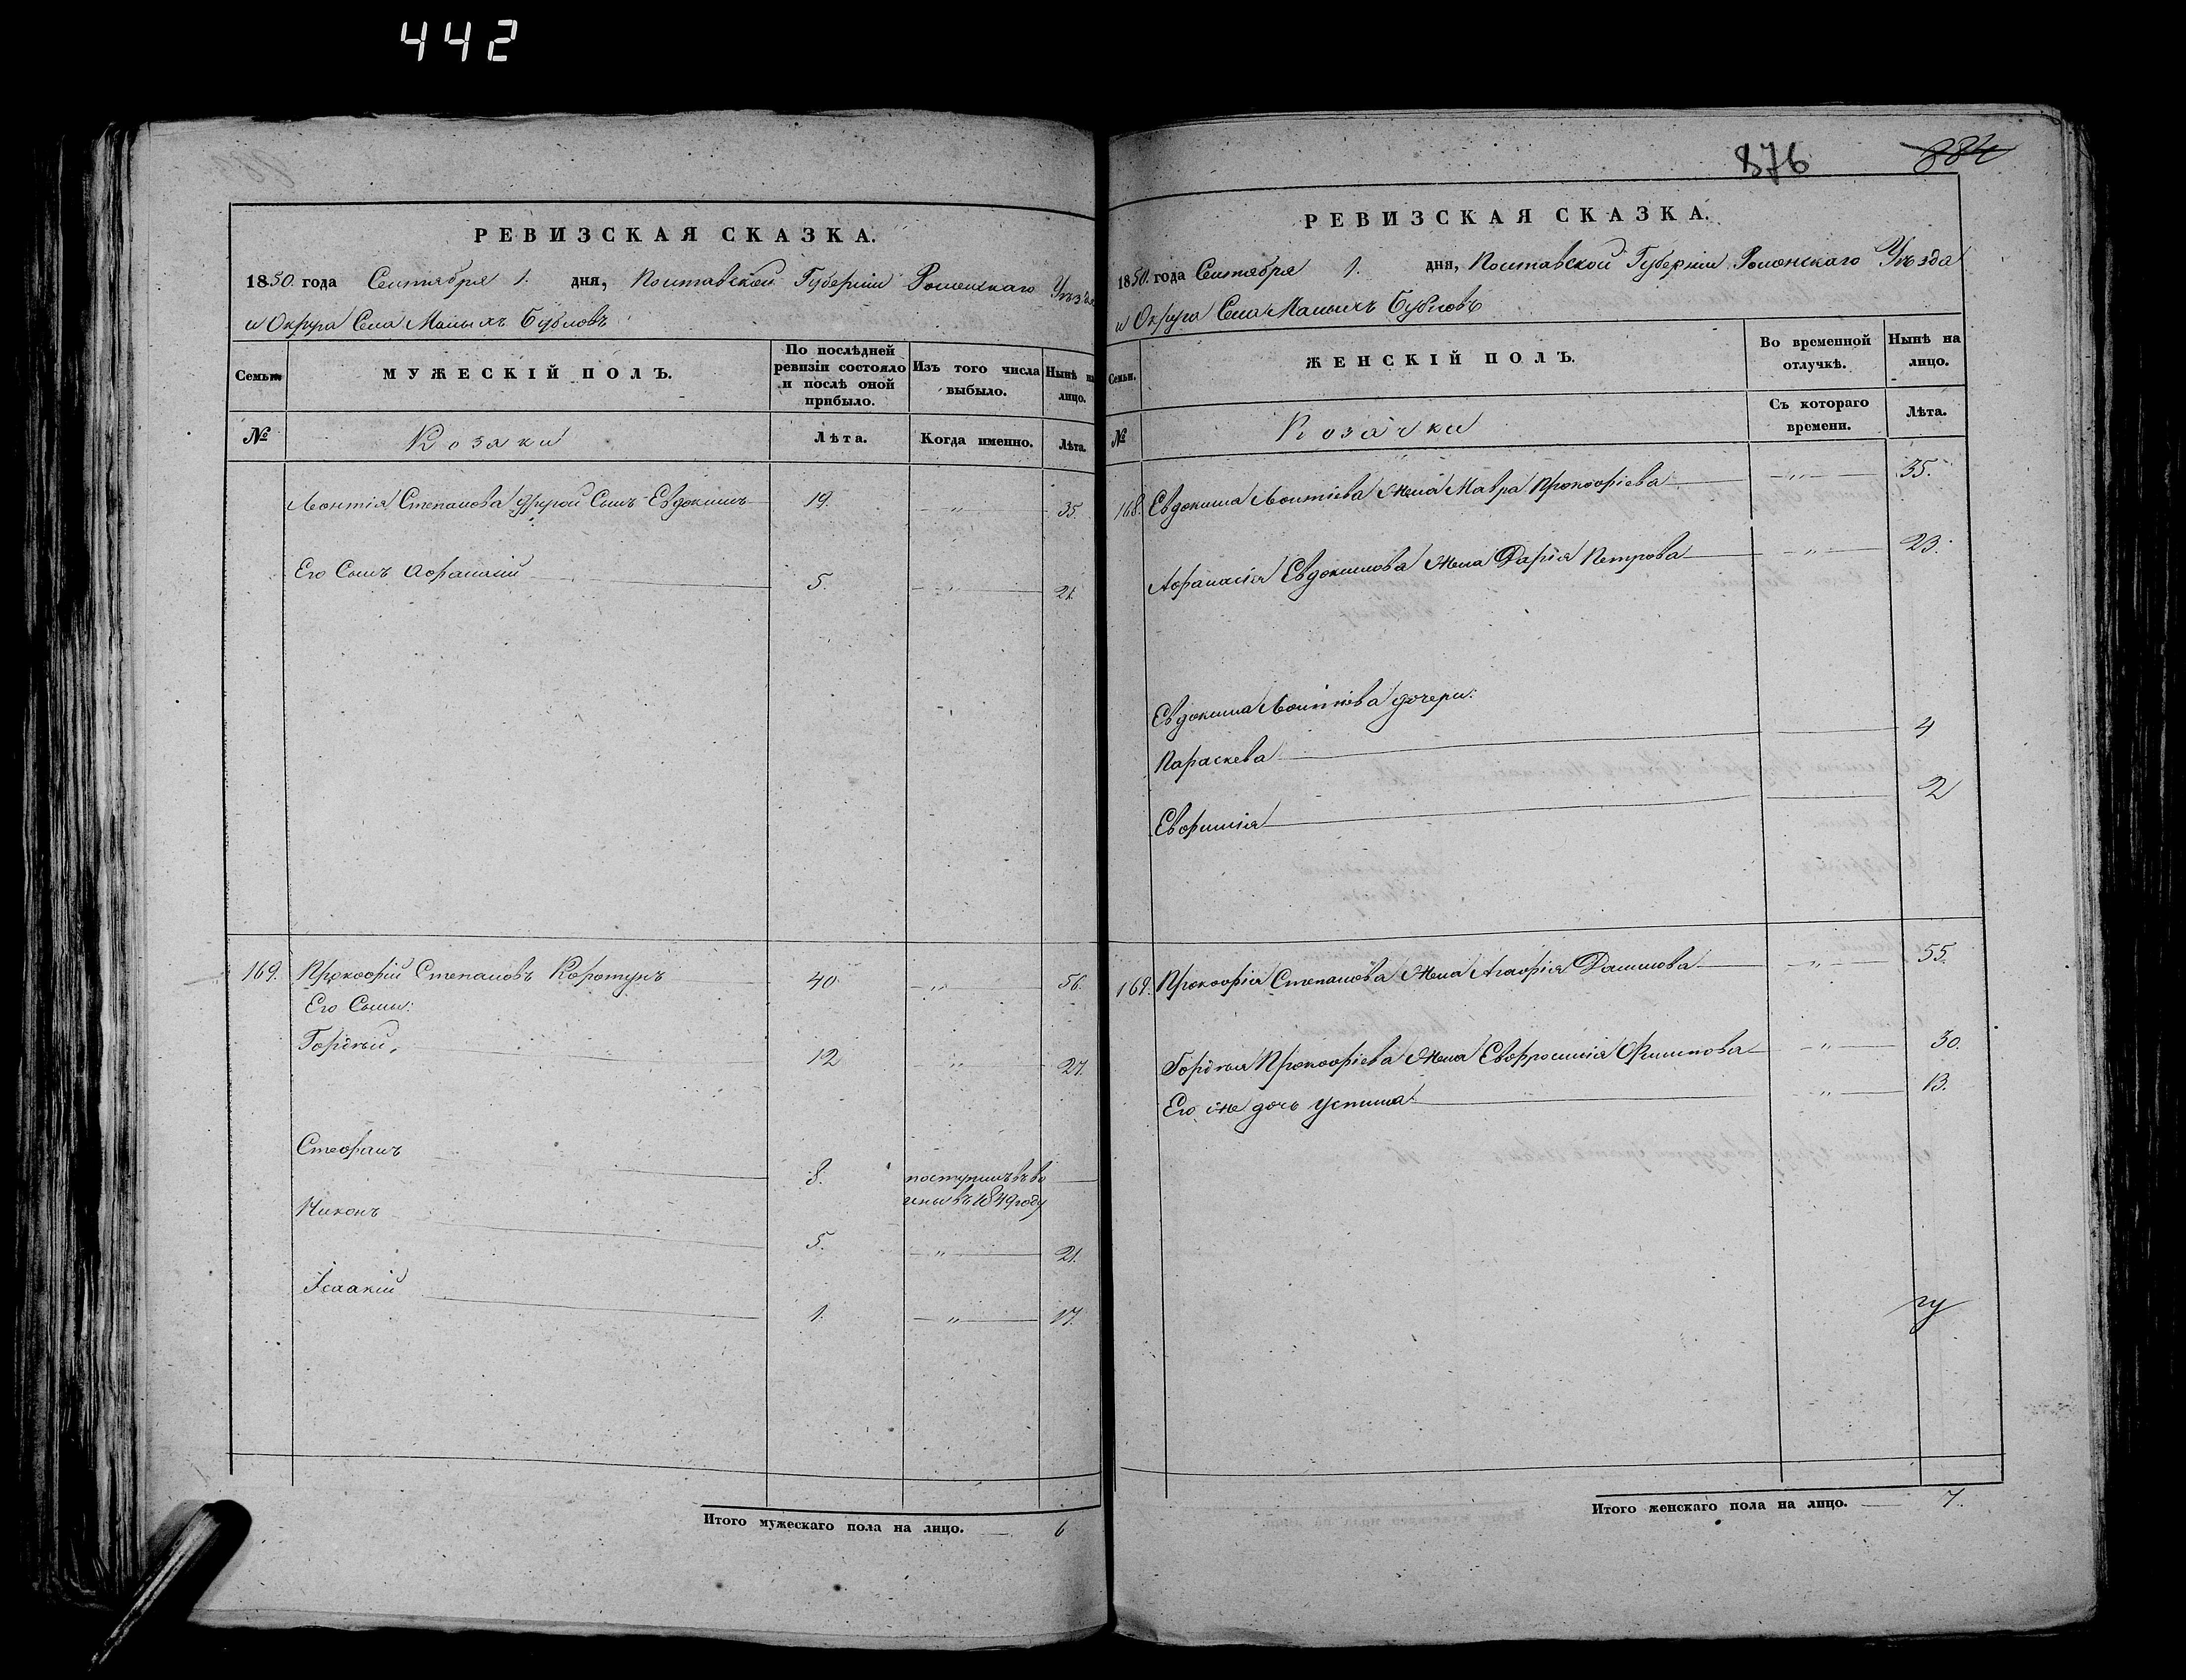 442
РЕВИЗСКАЯ СКАЗКА.
1850. года Сентября 1. дня, Полтавской Губерніи Роменскаго Уѣзда
и Округа Села Малыхъ Бубновъ
Семьи
МУЖЕСКІЙ ПОЛЪ.
По послѣдней ревизіи состояло и послѣ оной прибыло.
Изъ того числа выбыло.
Нынѣ на лицо.
№
Козаки
Лѣта.
Когда именно.
Лѣта.
Леонтія Степанова другой Сынъ Евдокимъ 19. „ 35.
Его Сынъ Афанасій 5. „ 21.
169. Прокофій Степановъ Коротунъ 40 „ 56.
Его Сыны:
Гордѣй, 12 „ 27.
Стефанъ 8. поступилъ въ во
ины въ 1849 году
Никонъ 5. „ 21.
Ісаакій 1. „ 17.
Итого мужескаго пола на лицо. 6
876
884
РЕВИЗСКАЯ СКАЗКА.
1850. года Сентября 1. дня, Полтавской Губерніи Роменскаго Уѣзда
и Округа Села Малыхъ Бубновъ
Семьи.
ЖЕНСКІЙ ПОЛЪ.
Во временной отлучкѣ.
Нынѣ на лицо.
№
Козачки
Съ котораго времени.
Лѣта.
168. Евдокима Леонтіева Жена Мавра Прокофіева „ 35.
Афанасія Евдокимова Жена Дарія Петрова „ 23.
Евдокима Леонтіева дочери:
Параскева 4
Евфимія 2
169. Прокофія Степанова Жена Агафія Данилова „ 55.
Гордѣя Прокофіева Жена Евфросинія Филипова „ 30.
Его же дочь Устина „ 13.
Итого женскаго пола на лицо. 7.